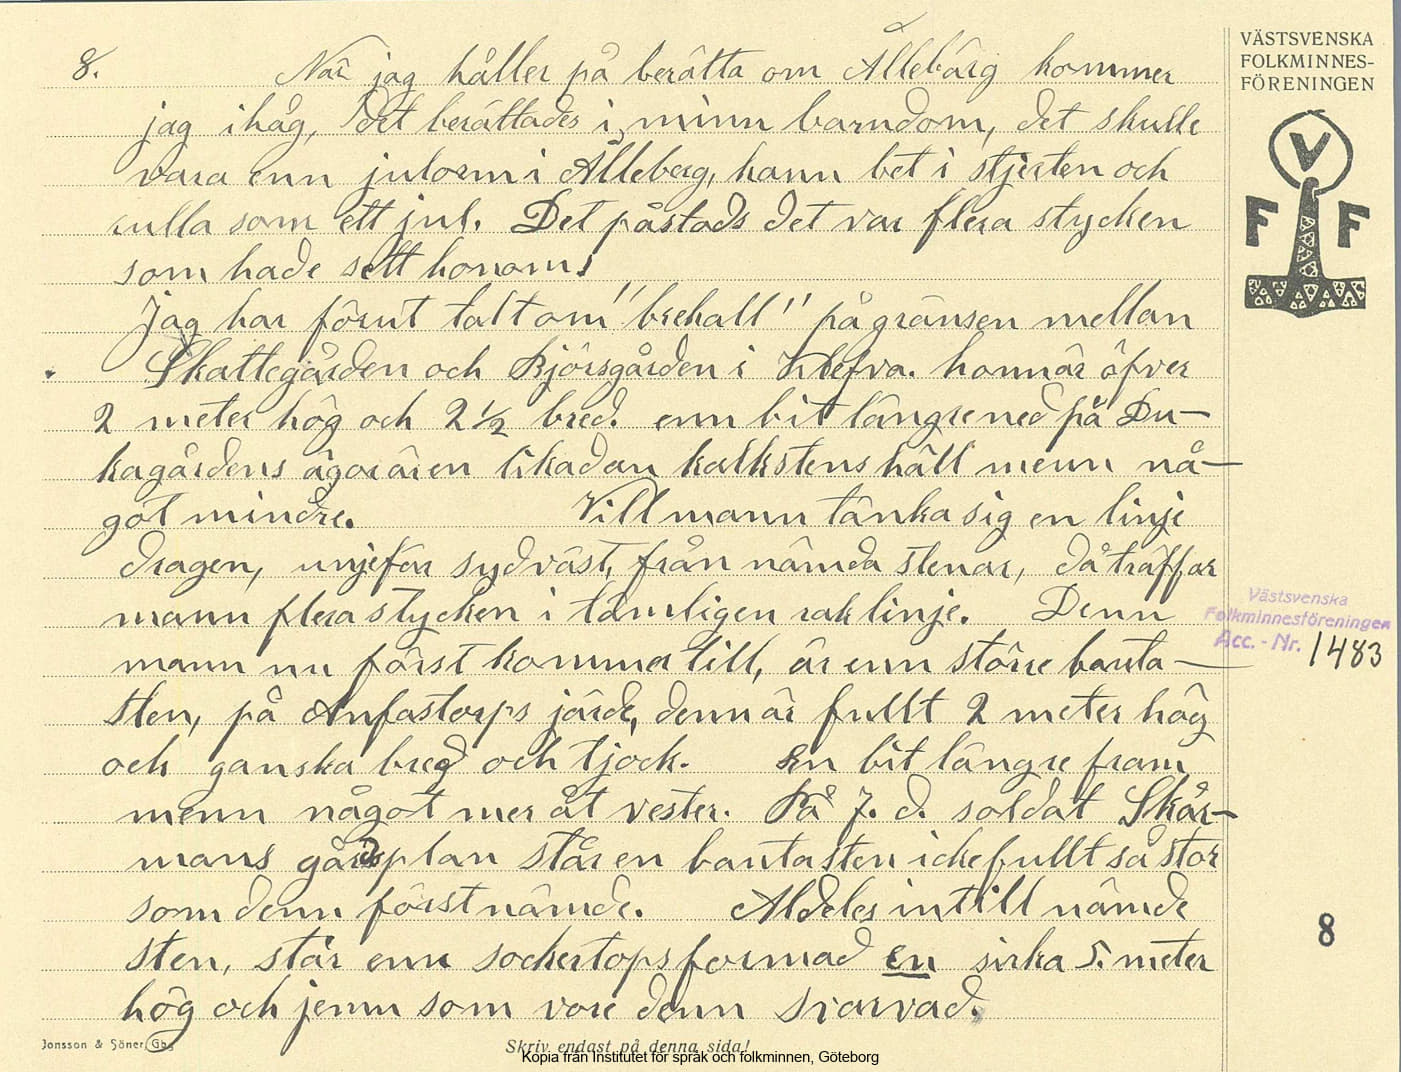 VÄSTSVENSKA
FOLKMINNES-
FÖRENINGEN
V
F F
8.
När jag håller på berätta om Ålleberg kommer
jag ihåg, det berättades i minn barndom, det skulle
vara enn julorm i Ålleberg, hann bet i stjerten och
rulla som ett jul. Det påstods det var flera stycken
som hade sett honom.
Jag har förut talt om "brehall" på gränsen mellan
Skattegården och Björsgården i Klefva. honn är öfver
2 meter hög och 2 1/2 bred. enn bit längre ned på Du-
kagårdens ägor är en likadan kalkstenshäll menn nå-
got mindre. Vill mann tänka sig en linje
dragen, unjefär sydväst, från nämda stenar, då träffar
mann flera stycken i tämligen rak linje. Denn
mann nu först kommer till, är enn större bauta-
sten, på Anfastorps järde, denn är fullt 2 meter hög
och ganska bred och tjock. En bit längre fram
menn något mer åt vester. På f. d. soldat Skår-
mans gårdsplan står en bautasten icke fullt så stor
som denn först nämde. Aldeles intill nämde
sten, står enn sockertopsformad en sirka 5. meter
hög och jemn som vore denn svarvad.
Västsvenska
Folkminnesföreningen
Acc. - Nr. 1483
8
Jonsson & Söner, Gbg
Skriv endast på denna sida!
Kopia från Institutet för språk och folkminnen, Göteborg